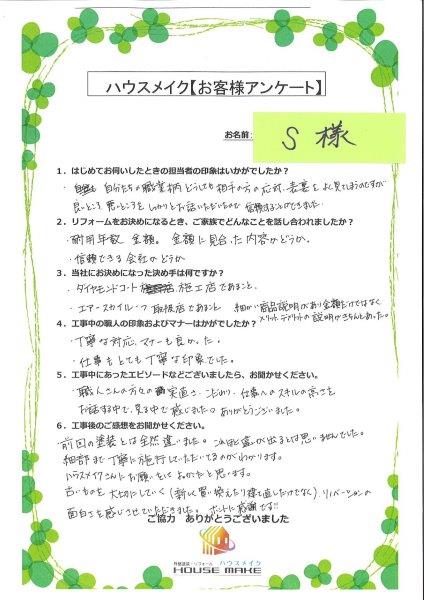 ハウスメイク【お客様アンケート】
お名前: S 様
1．はじめてお伺いしたときの担当者の印象はいかがでしたか？
・自分たちの職業柄どうしても相手の方の応対、表裏をよく見てしまうのですが
良いところ、悪いところをしっかりとお話いただいたので信頼することができました。
2．リフォームをお決めになるとき、ご家族でどんなことを話し合われましたか？
・耐用年数 金額。金額に見合った内容かどうか。
・信頼できる会社かどうか
3．当社にお決めになった決め手は何ですか？
・ダイヤモンドコート 施工店であること。
・エアースカイルーフ取扱店であること 細かい商品説明があり金額だけではなく
メリット、デメリットの説明がきちんとあった。
4．工事中の職人の印象およびマナーはいかがでしたか？
・丁寧な対応、マナーも良かった。
・仕事もとても丁寧な印象でした。
5．工事中にあったエピソードなどございましたら、お聞かせください。
・職人さんの方々の実直さ・こだわり、仕事へのスキルの高さを
お話する中で、見る中で感じました。ありがとうございました。
6．工事後のご感想をお聞かせください。
前回の塗装とは全然違いました。これほど差が出るとは思いませんでした。
細部まで丁寧に施行していただいてるのがわかります。
ハウスメイクさんにお願いをしてよかったと思います。
古いものを大切にしていく（新しく買い換えたり建て直しだけでなく）リノベーションの
面白さを感じさせていただきました。ホントに感謝です!!
ご協力 ありがとうございました
外壁塗装・リフォーム ハウスメイク
HOUSE MAKE